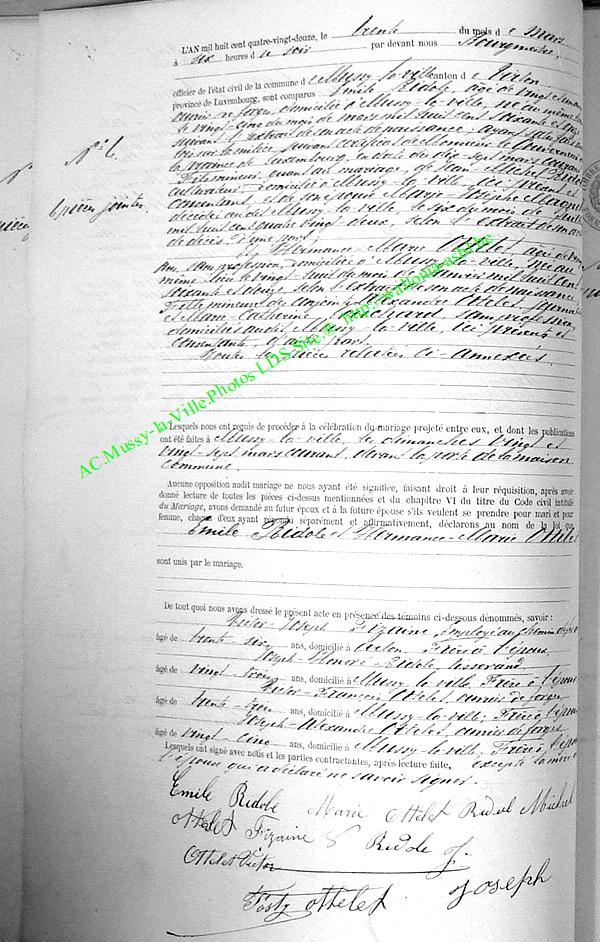 L'AN mil huit cent quatre-vingt-douze, le trente du mois de Mars
à six heures du soir par devant nous Bourgmestre,
officier de l'état civil de la commune de Mussy-la-ville canton de Virton
province de Luxembourg, sont comparus Emile Ridole, âgé de vingt et un ans
ouvrier de forges, domicilié à Mussy-la-ville, né au même lieu
le vingt-cinq du mois de mars mil huit cent soixante et onze
suivant l'extrait de son acte de naissance; ayant satisfait aux
lois sur la milice, suivant certificat de Monsieur le Gouverneur de
la province de Luxembourg, en date du dix-sept mars courant
Fils mineur quant au mariage, de Jean-Michel Ridole
cultivateur, domicilié à Mussy-la-ville, ici présent et
consentant, et de son épouse Marie Josephe
décédée audit Mussy-la-ville, le six du mois de
mil huit cent quatre vingt-deux, selon l'extrait de son acte
de décès, d'une part;
N° 6.
6 pièces jointes.
Et Hermance-Marie Ottelet âgée de vingt
ans, sans profession, domiciliée à Mussy-la-ville, née au
même lieu le vingt-huit du mois de mil huit cent
soixante et douze, selon l'extrait de son acte de naissance,
Fille mineure des conjoints Alexandre Ottelet, journalier
et Marie-Catherine sans profession
domiciliés audit Mussy-la-ville, ici présents et
consentants, d'autre part.
Toutes les pièces relatées ci-annexées.
Lesquels nous ont requis de procéder à la célébration du mariage projeté entre eux, et dont les publications
ont été faites à Mussy-la-ville, les dimanches vingt et
vingt-sept mars courant, devant la porte de la maison
commune.
Aucune opposition audit mariage ne nous ayant été signifiée, faisant droit à leur réquisition, après avoir
donné lecture de toutes les pièces ci-dessus mentionnées et du chapitre VI du titre du Code civil intitulé
du Mariage, avons demandé au futur époux et à la future épouse s'ils veulent se prendre pour mari et pour
femme, chacun d'eux ayant répondu séparément et affirmativement, déclarons au nom de la loi que
Emile Ridole et Hermance-Marie Ottelet
sont unis par le mariage.
De tout quoi nous avons dressé le présent acte en présence des témoins ci-dessous dénommés, savoir :
Victor-Joseph Fizaine, Employé au chemin de fer
âgé de trente-six ans, domicilié à Arlon, Frère à l'époux
Joseph-Honoré Ridole, tisserand
âgé de vingt-trois ans, domicilié à Mussy-la-ville, Frère à l'époux
Victor-François Ottelet, ouvrier de forges
âgé de trente-trois ans, domicilié à Mussy-la-ville, Frère à l'épouse
Joseph-Alexandre Ottelet, ouvrier de forges
âgé de vingt-cinq ans, domicilié à Mussy-la-ville, Frère à l'épouse
Lesquels ont signé avec nous et les parties contractantes, après lecture faite, excepté la mère de
l'épouse qui a déclaré ne savoir signer.
Emile Ridole Marie Ottelet Ridole Michel
Ottelet Fizaine V Ridole J.
Ottelet Victor
Fosty Ottelet Joseph
AC.Mussy-la-Ville.Photos LDS.Site © http:/wallonia-asbl.be